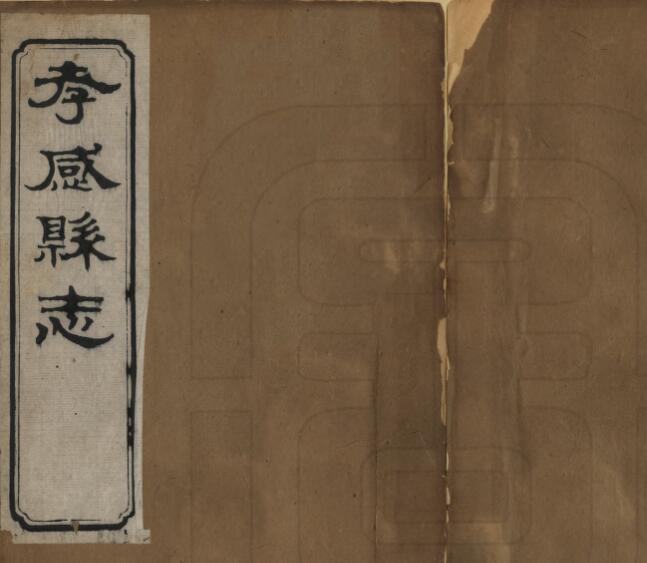 孝感縣志